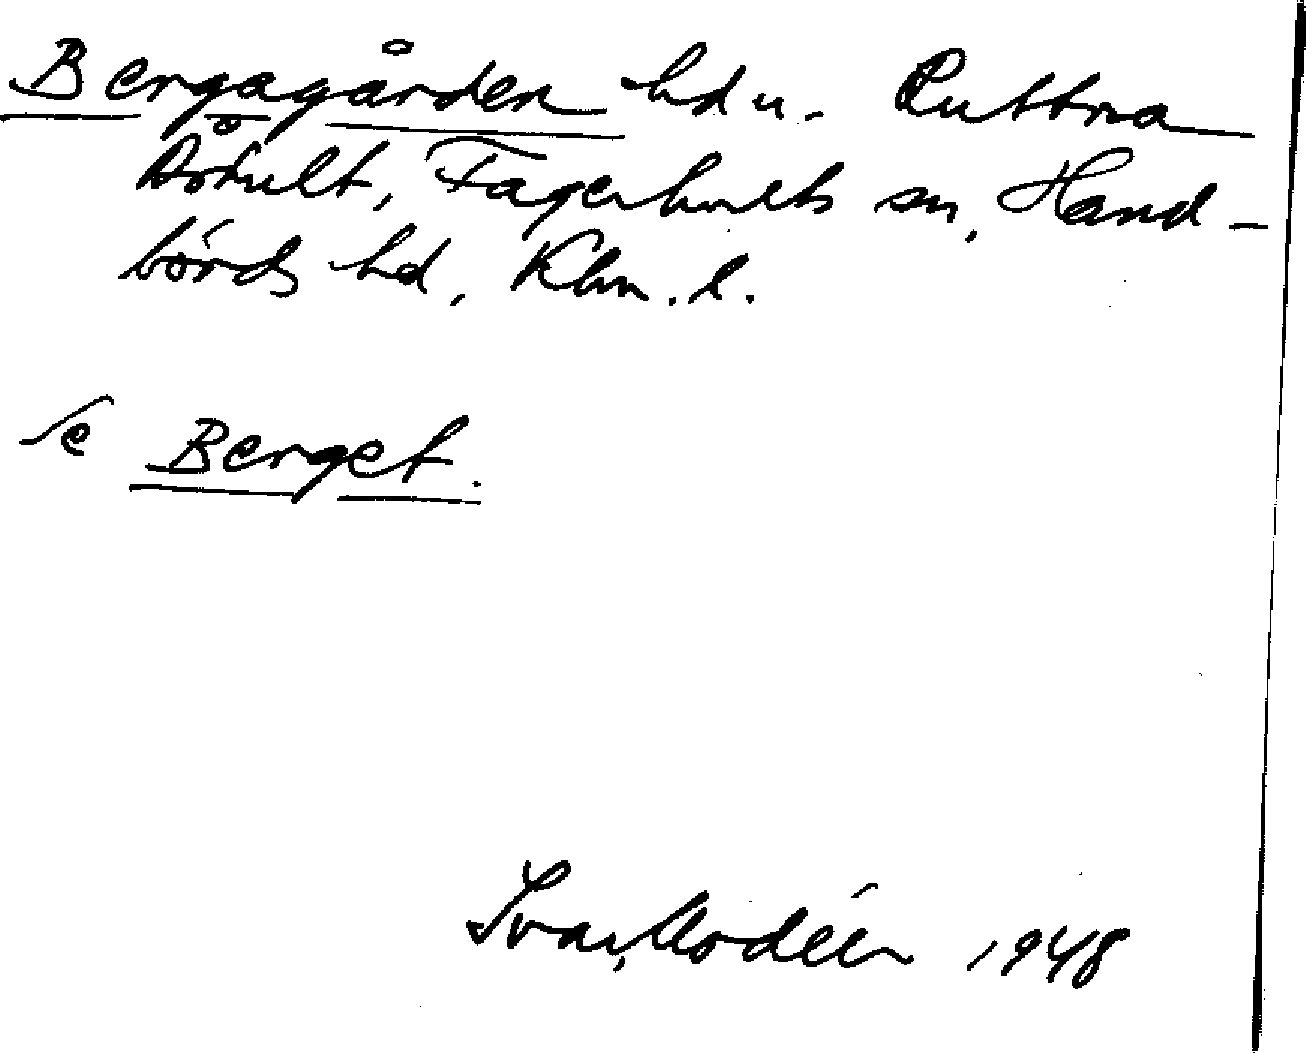 Bergagården hd u. Ruttna
Århult, Fagerhults sn, Hand-
börds hd, Klm. l.
se Berget.
Ivar Modéer 1948